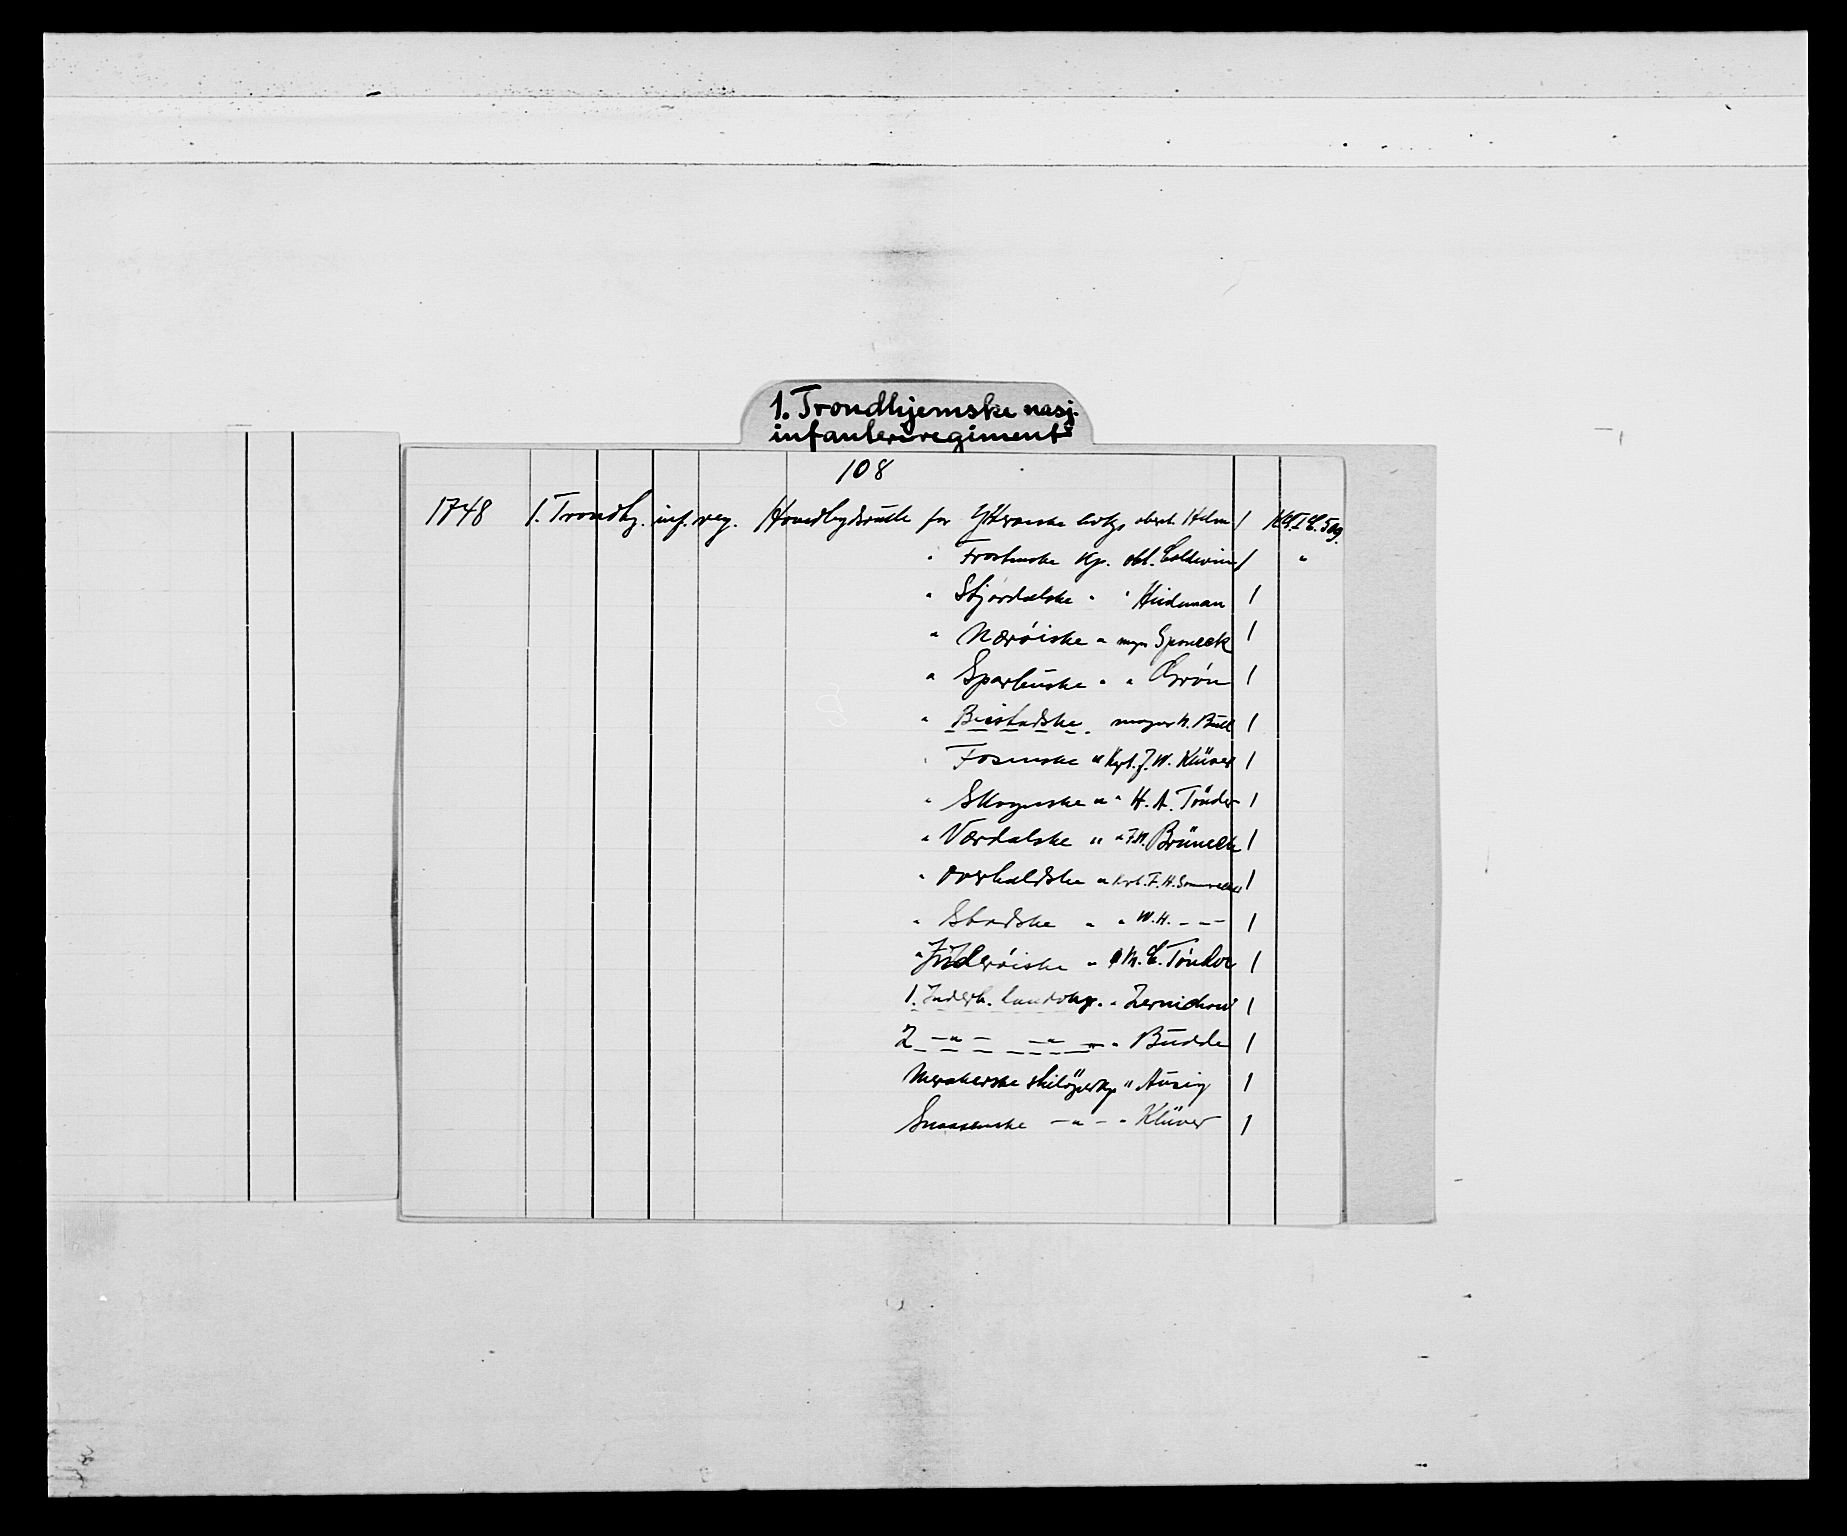 1. Trondhjemske nasj.
infanteriregiment
108
1748 1. Trondhj. inf. reg. Hovedbydsrulle for Ytterøiske livkp. oberst Helm 1
" Frostenske kp. obl. Coldevin 1 "
" Stjørdalske " " Heideman 1
" Nærøiske " major Sponeck 1
" Sparbuske " " Grøn 1
" Beistadske major H. Bull 1
" Fosenske " Kapt. J. W. Klüwer 1
" Skognske " " H. A. Tønder 1
" Værdalske " " Brünech 1
" Overhaldske " Kapt. F. H. 1
" Stadske " " W. H. — " — 1
" Inderøiske " " M. C. Tønder 1
1. Inderh. landvkp. " Zernichow 1
2 — " — — " — " Budde 1
Merakerske skiløperkp " Ausig 1
Snaasenske — " — " Klüwer 1